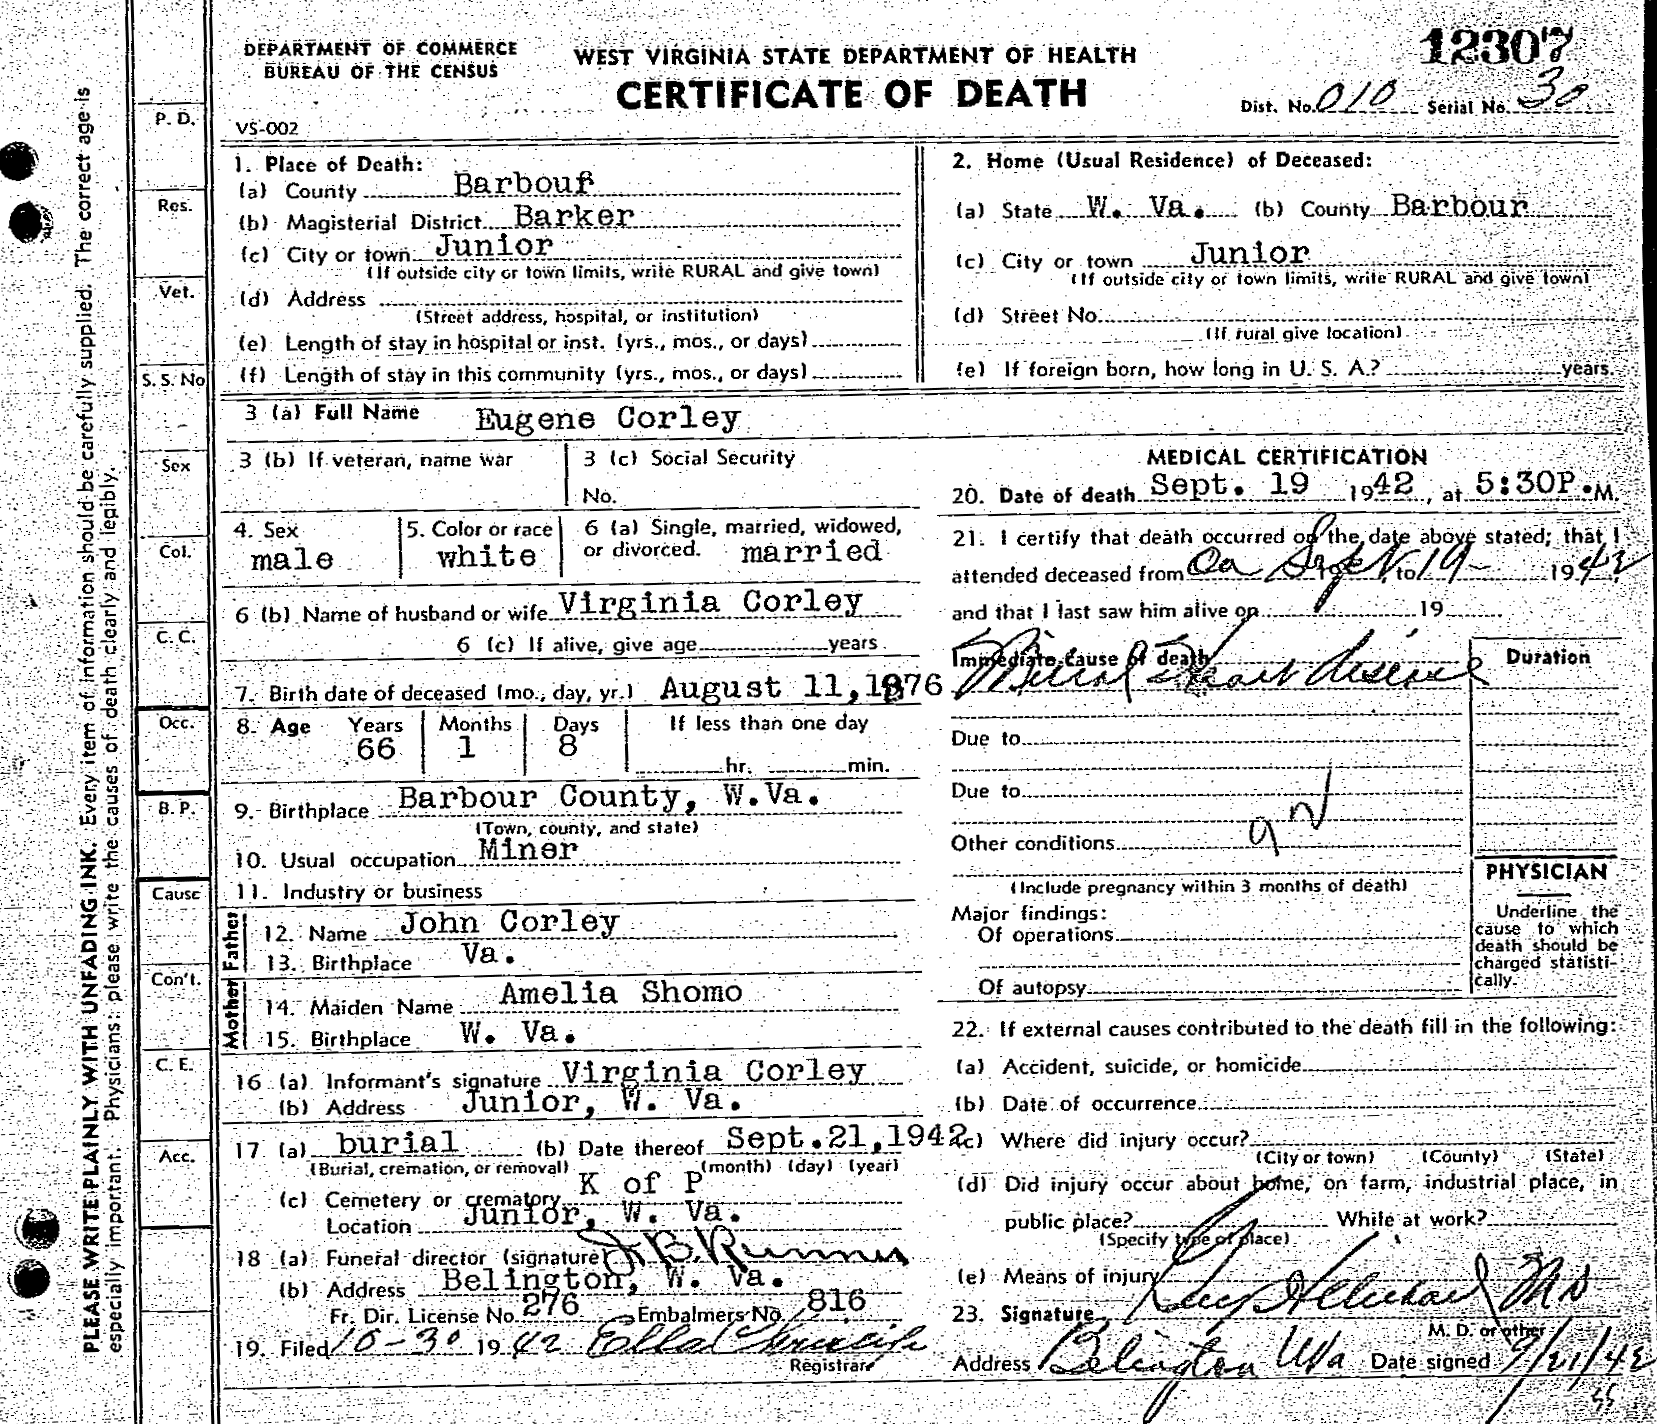 DEPARTMENT OF COMMERCE
BUREAU OF THE CENSUS
WEST VIRGINIA STATE DEPARTMENT OF HEALTH
CERTIFICATE OF DEATH
12307
Dist. No. 010 Serial No. 30
VS-002
1. Place of Death:
(a) County Barbour
(b) Magisterial District Barker
(c) City or town Junior
(If outside city or town limits, write RURAL and give town)
(d) Address
(Street address, hospital, or institution)
(e) Length of stay in hospital or inst. (yrs., mos., or days)
(f) Length of stay in this community (yrs., mos., or days)
2. Home (Usual Residence) of Deceased:
(a) State W. Va. (b) County Barbour
(c) City or town Junior
(If outside city or town limits, write RURAL and give town)
(d) Street No.
(If rural give location)
(e) If foreign born, how long in U. S. A.? years.
3 (a) Full Name Eugene Corley
3 (b) If veteran, name war
3 (c) Social Security
No.
4. Sex male
5. Color or race white
6 (a) Single, married, widowed,
or divorced. married
6 (b) Name of husband or wife Virginia Corley
6 (c) If alive, give age years
7. Birth date of deceased (mo., day, yr.) August 11, 1876
8. Age Years Months Days If less than one day
66 1 8 hr. min.
9. Birthplace Barbour County, W.Va.
(Town, county, and state)
10. Usual occupation Miner
11. Industry or business
Father
12. Name John Corley
13. Birthplace Va.
Mother
14. Maiden Name Amelia Shomo
15. Birthplace W. Va.
16 (a) Informant's signature Virginia Corley
(b) Address Junior, W. Va.
17 (a) burial (b) Date thereof Sept.21,1942
(Burial, cremation, or removal) (month) (day) (year)
(c) Cemetery or crematory K of P
Location Junior, W. Va.
18 (a) Funeral director (signature) J B. Runner
(b) Address Belington, W. Va.
Fr. Dir. License No. 276 Embalmers No. 816
19. Filed 10-30 1942 Ella
Registrar
MEDICAL CERTIFICATION
20. Date of death Sept. 19 1942, at 5:30P.M.
21. I certify that death occurred on the date above stated; that I
attended deceased from On Sept 19, to 19- 1942
and that I last saw him alive on 19
Immediate Cause of death Mitral Heart disease
Duration
Due to
Due to
Other conditions
(Include pregnancy within 3 months of death)
Major findings:
Of operations
Of autopsy
PHYSICIAN
Underline the
cause to which
death should be
charged statisti-
cally.
22. If external causes contributed to the death fill in the following:
(a) Accident, suicide, or homicide
(b) Date of occurrence
(c) Where did injury occur?
(City or town) (County) (State)
(d) Did injury occur about home, on farm, industrial place, in
public place? While at work?
(Specify type of place)
(e) Means of injury
23. Signature MD
M. D. or other
Address Belington WVa Date signed 9/21/42
55
P. D.
Res.
Vet.
S. S. No
Sex
Col.
C. C.
Occ.
B. P.
Cause
Con't.
C. E.
Acc.
PLEASE WRITE PLAINLY WITH UNFADING INK. Every item of information should be carefully supplied. The correct age is
especially important. Physicians: please write the causes of death clearly and legibly.